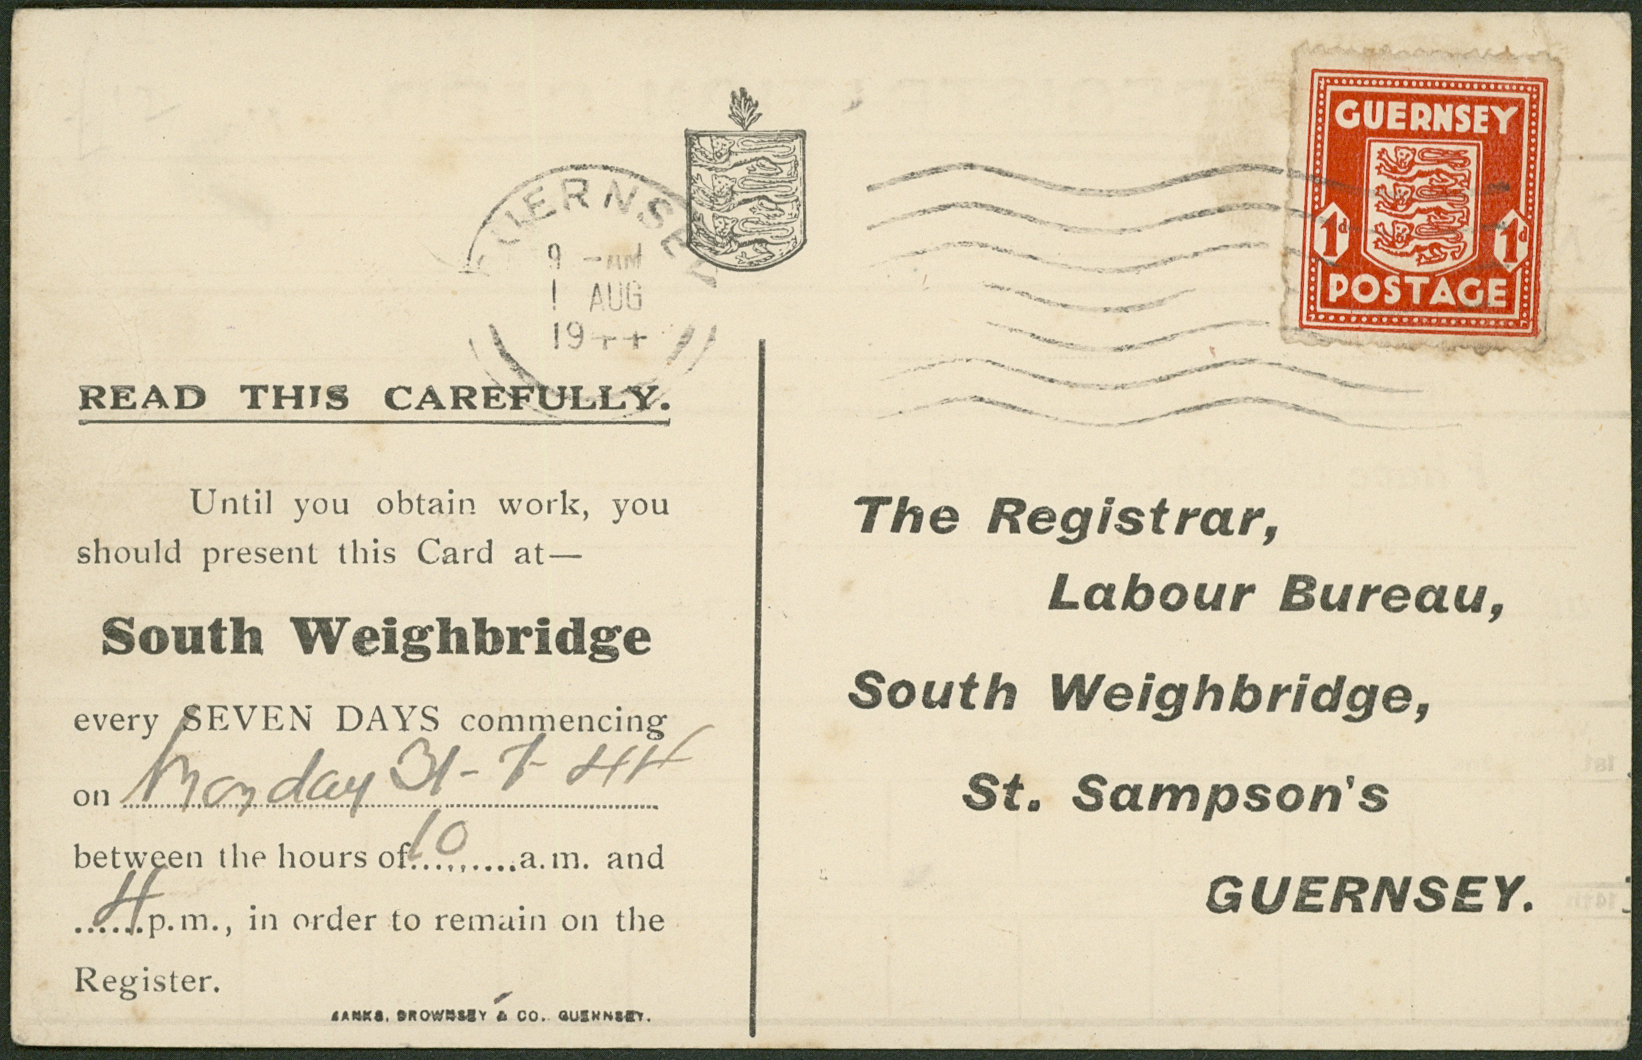 GUERNSEY
1d 1d
POSTAGE
GUERNSEY
9 -AM
1 AUG
1944
READ THIS CAREFULLY.
Until you obtain work, you
should present this Card at—
South Weighbridge
every SEVEN DAYS commencing
on Monday 31-7-44
between the hours of 10 a.m. and
4 p.m., in order to remain on the
Register.
BANKS, BROWNSEY & CO., GUERNSEY.
The Registrar,
Labour Bureau,
South Weighbridge,
St. Sampson's
GUERNSEY.